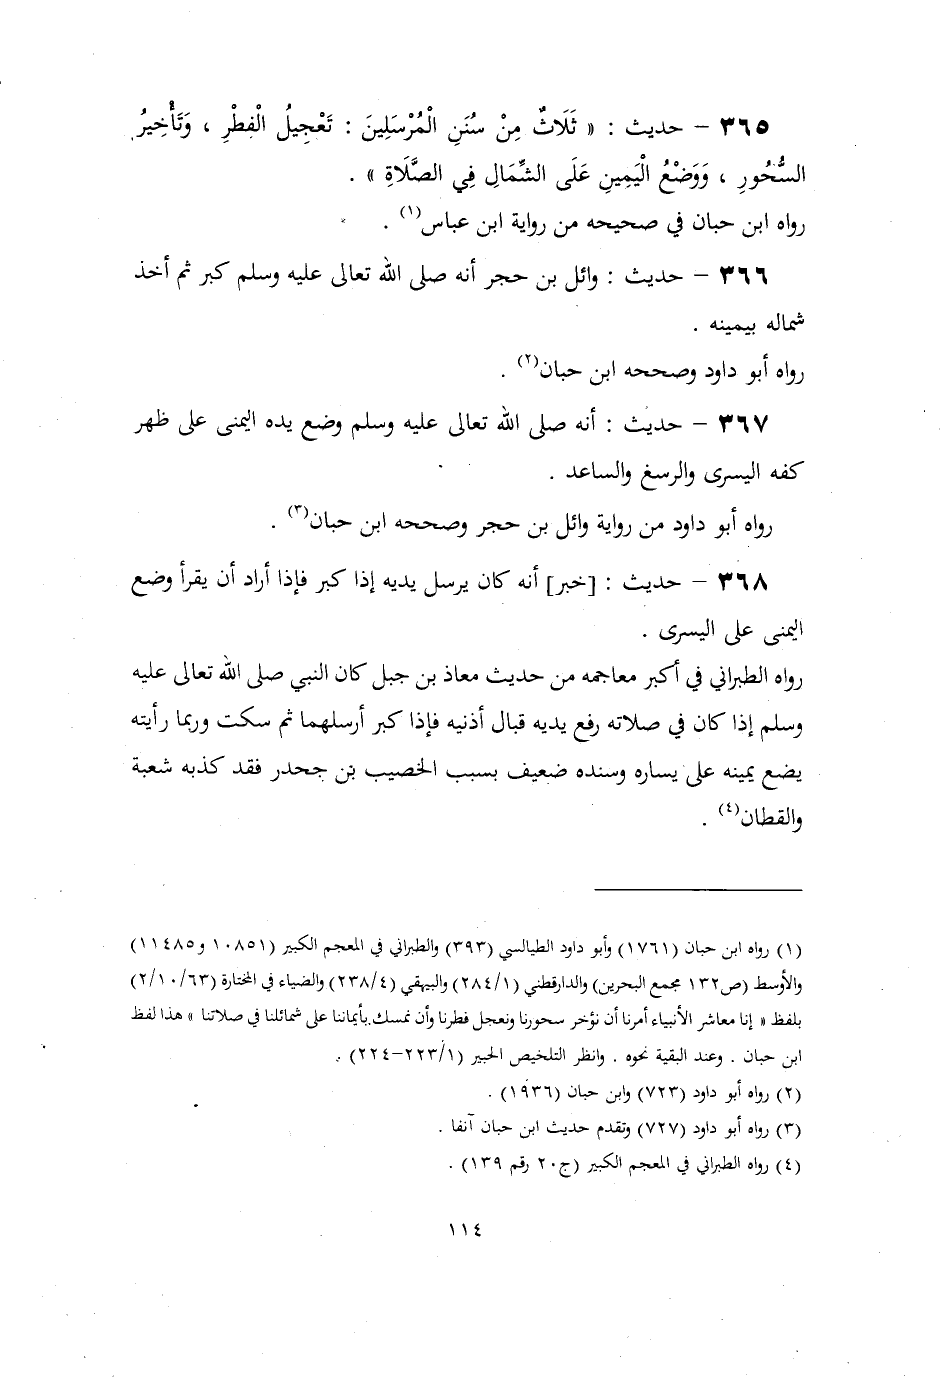 ٣٦٥ – حديث : « ثَلَاثٌ مِنْ سُنَنِ الْمُرْسَلِينَ : تَعْجِيلُ الْفِطْرِ ، وَتَأْخِيرُ
السُّحُورِ ، وَوَضْعُ الْيَمِينِ عَلَى الشِّمَالِ فِي الصَّلَاةِ » .
رواه ابن حبان في صحيحه من رواية ابن عباس(١) .
٣٦٦ – حديث : وائل بن حجر أنه صلى الله تعالى عليه وسلم كبر ثم أخذ
شماله بيمينه .
رواه أبو داود وصححه ابن حبان(٢) .
٣٦٧ – حديث : أنه صلى الله تعالى عليه وسلم وضع يده اليمنى على ظهر
كفه اليسرى والرسغ والساعد .
رواه أبو داود من رواية وائل بن حجر وصححه ابن حبان(٣) .
٣٦٨ – حديث : [خبر] أنه كان يرسل يديه إذا كبر فإذا أراد أن يقرأ وضع
اليمنى على اليسرى .
رواه الطبراني في أكبر معاجمه من حديث معاذ بن جبل كان النبي صلى الله تعالى عليه
وسلم إذا كان في صلاته رفع يديه قبال أذنيه فإذا كبر أرسلهما ثم سكت وربما رأيته
يضع يمينه على يساره وسنده ضعيف بسبب الخصيب بن جحدر فقد كذبه شعبة
والقطان(٤) .
(١) رواه ابن حبان (١٧٦١) وأبو داود الطيالسي (٣٩٣) والطبراني في المعجم الكبير (١٠٨٥١ و١١٤٨٥)
والأوسط (ص١٣٢ مجمع البحرين) والدارقطني (٢٨٤/١) والبيهقي (٢٣٨/٤) والضياء في المختارة (٢/١٠/٦٣)
بلفظ « إنا معاشر الأنبياء أمرنا أن نؤخر سحورنا ونعجل فطرنا وأن نمسك بأيماننا على شمائلنا في صلاتنا » هذا لفظ
ابن حبان . وعند البقية نحوه . وانظر التلخيص الحبير (٢٢٣/١–٢٢٤) .
(٢) رواه أبو داود (٧٢٣) وابن حبان (١٩٣٦) .
(٣) رواه أبو داود (٧٢٧) وتقدم حديث ابن حبان آنفا .
(٤) رواه الطبراني في المعجم الكبير (ج٢٠ رقم ١٣٩) .
١١٤